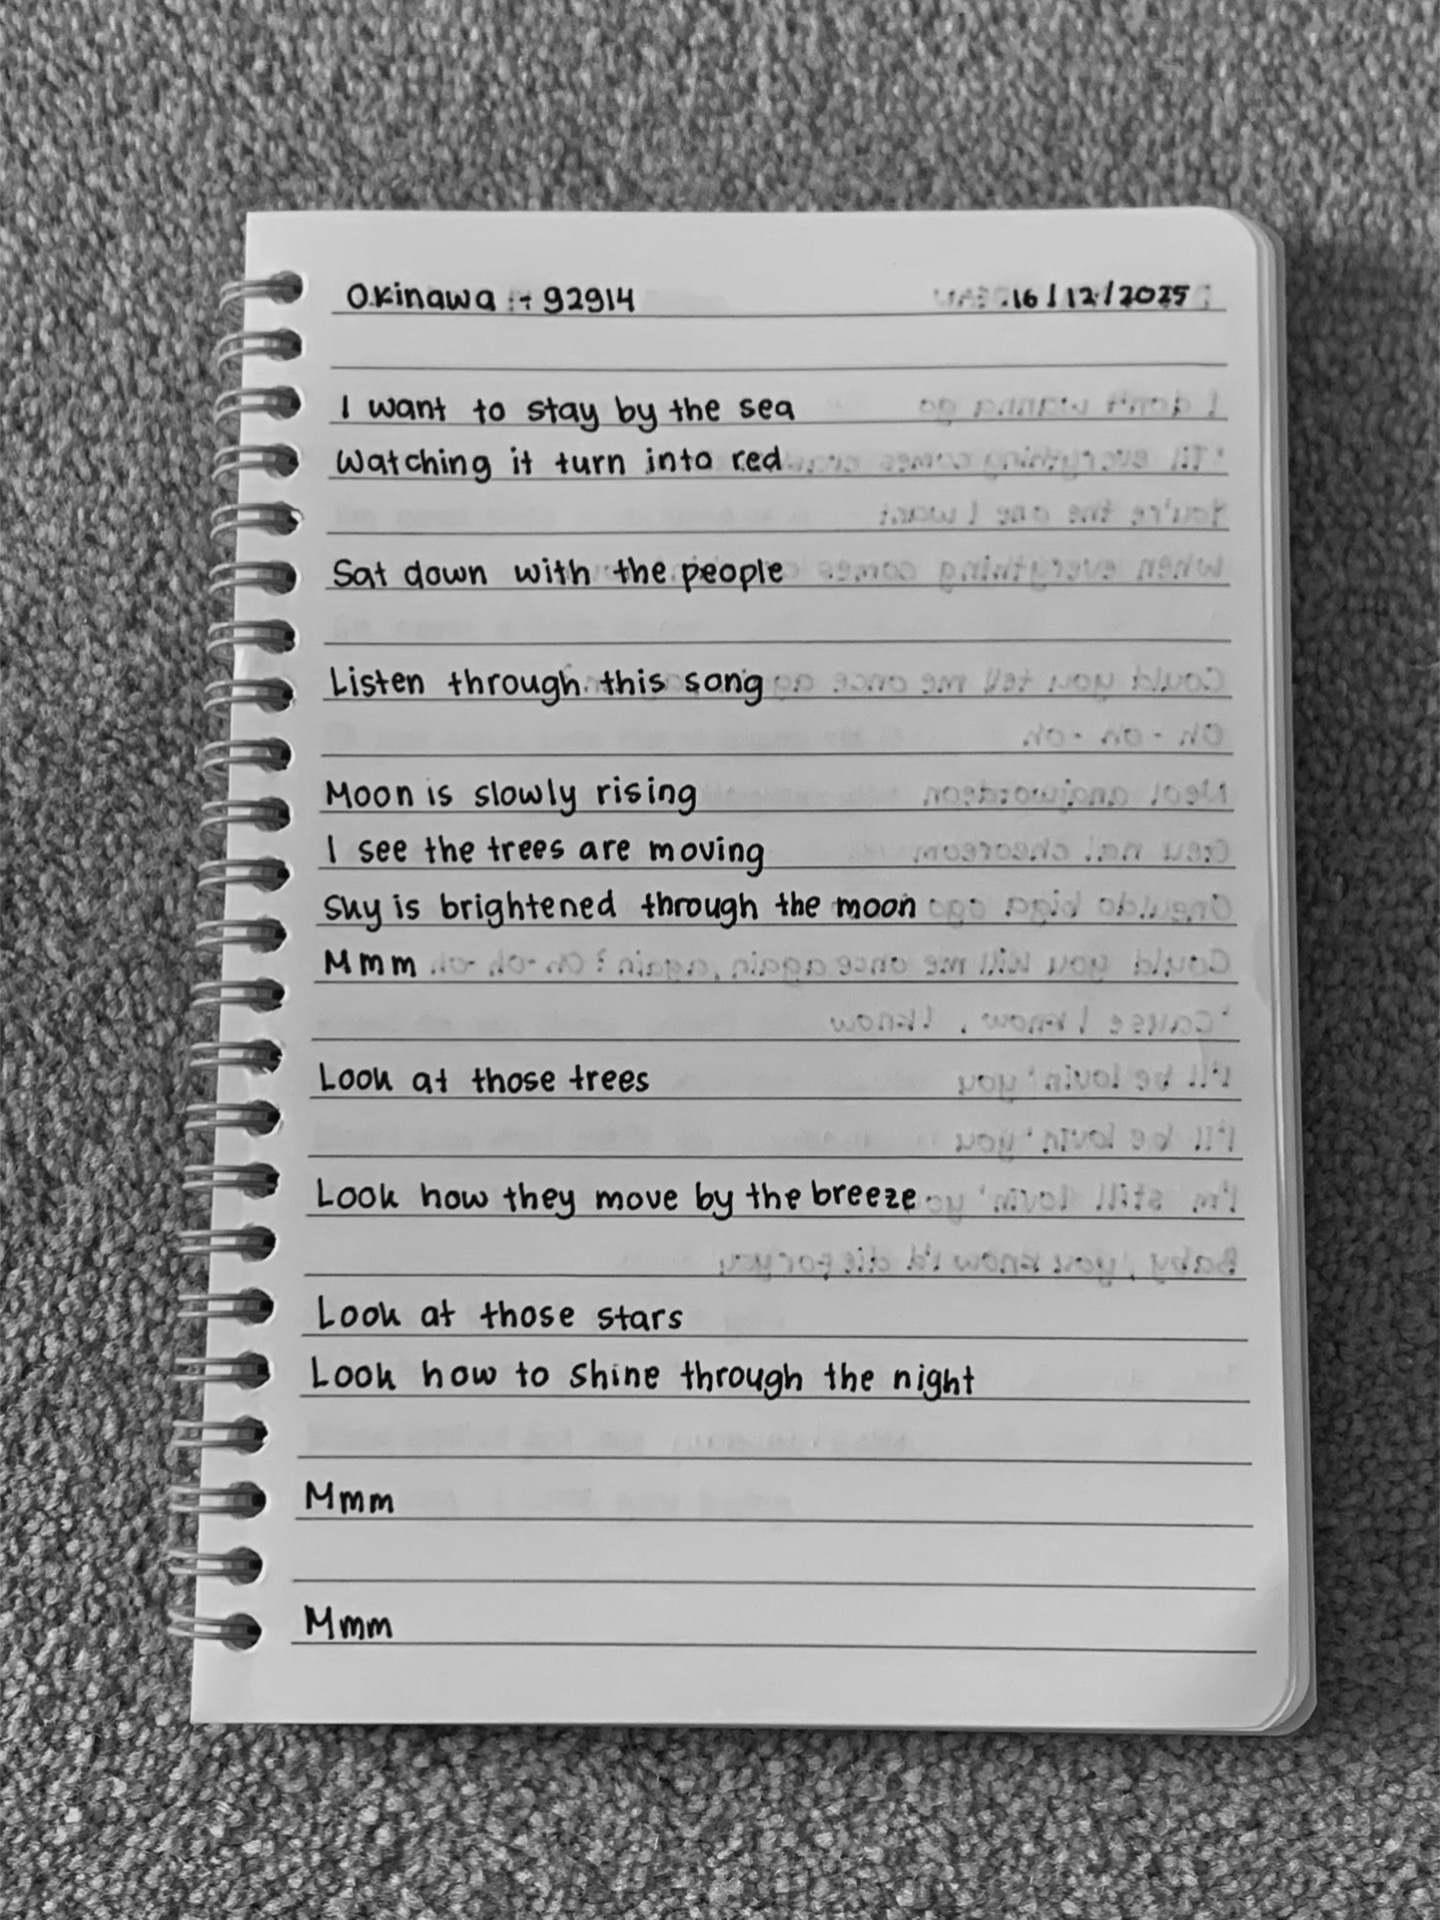 Okinawa :- 92914 16/12/2025
I want to stay by the sea
Watching it turn into red
Sat down with the people
Listen through this song
Moon is slowly rising
I see the trees are moving
Sky is brightened through the moon
Mmm
Look at those trees
Look how they move by the breeze
Look at those stars
Look how to shine through the night
Mmm
Mmm